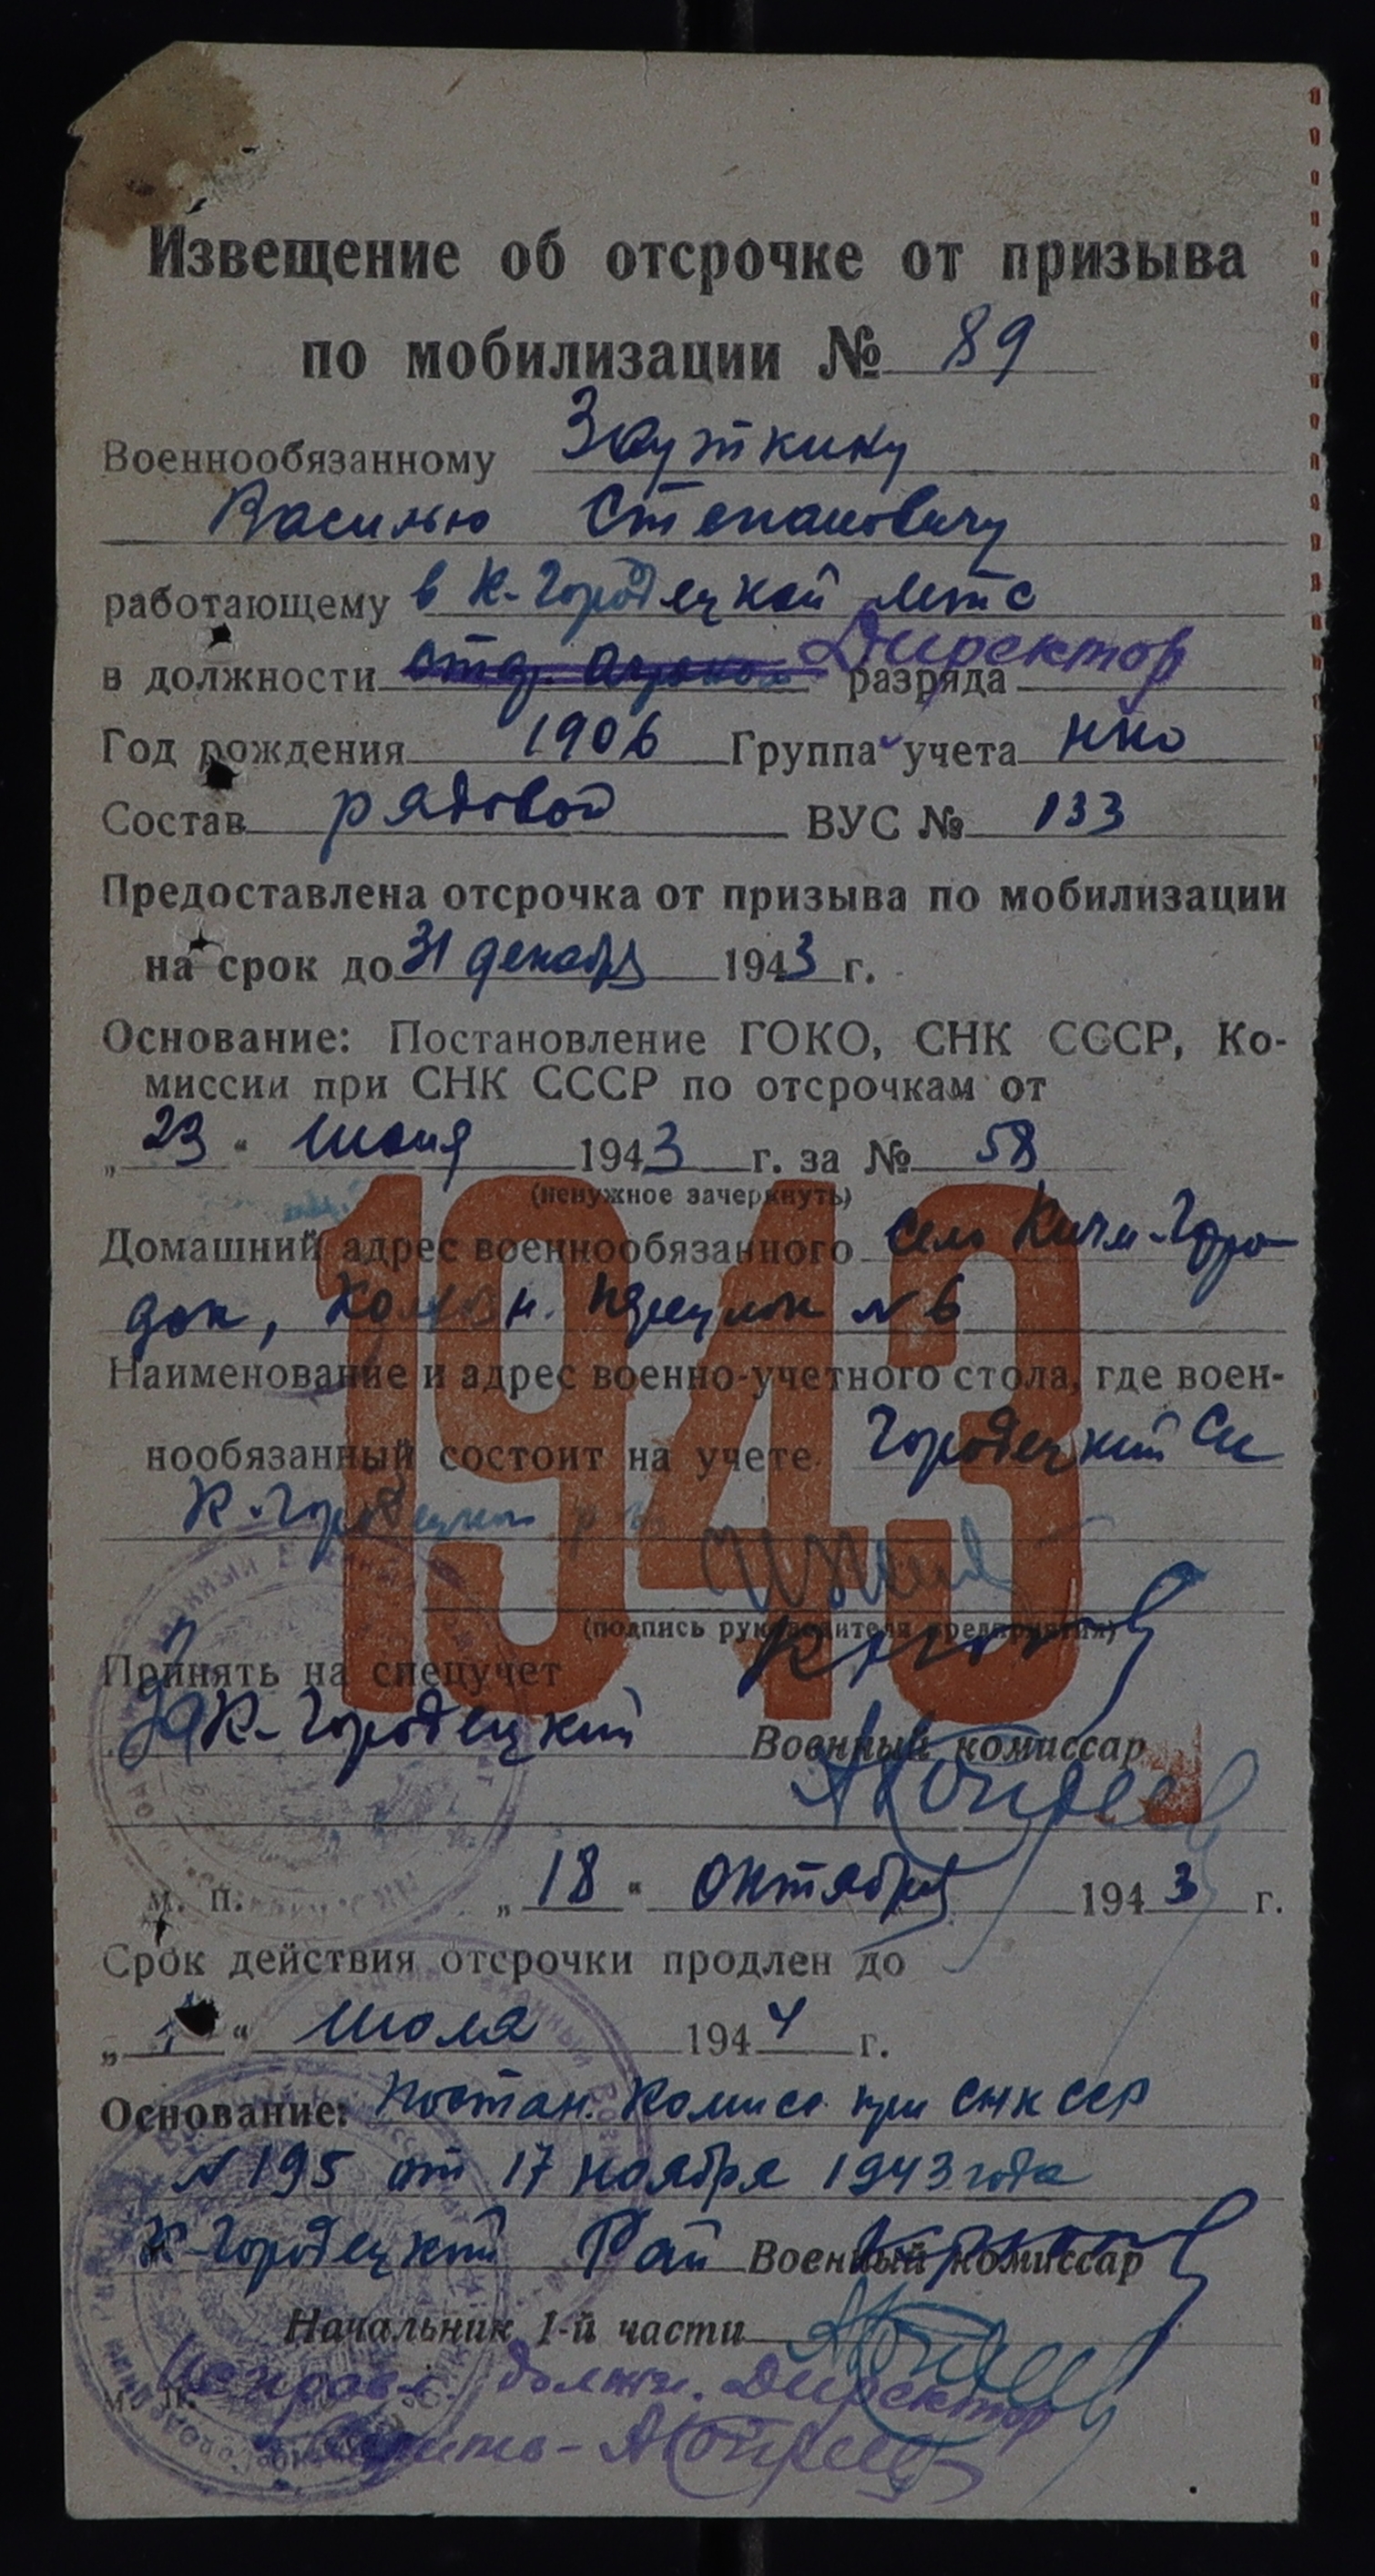 Извещение об отсрочке от призыва
по мобилизации № 89
Военнообязанному Зауткину
Василью Степановичу
работающему в К-Городецкой мтс
в должности Директор разряда
Год рождения 1906 Группа учета нко
Состав рядовой ВУС № 133
Предоставлена отсрочка от призыва по мобилизации
на срок до 31 декабря 1943 г.
Основание: Постановление ГОКО, СНК СССР, Ко-
миссии при СНК СССР по отсрочкам от
„23“ июня 1943 г. за № 58
(ненужное зачеркнуть)
1943
Домашний адрес военнообязанного село Кичм-Горо-
док, Комсн. переулок № 6
Наименование и адрес военно-учетного стола, где воен-
нообязанный состоит на учете Городецкий Сс
К-Городецкого
(подпись руководителя предприятия)
Принять на спецучет
К-Городецкий Военный комиссар
М. П. „18“ октября 1943 г.
Срок действия отсрочки продлен до
„1“ июля 1944 г.
Основание: Постан. Комисс. при СНК ССР
№ 195 от 17 ноября 1943 года
К-Городецкий Рай Военный комиссар
Начальник 1-й части
М. П.
Исправл. должн. Директор
верить -